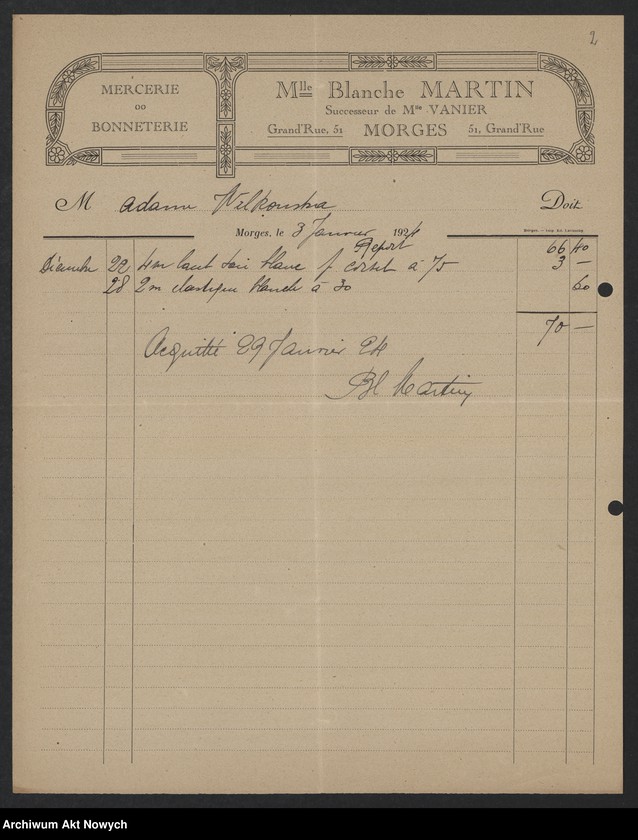 2
MERCERIE
oo
BONNETERIE
Mlle Blanche MARTIN
Successeur de Mme VANIER
Grand'Rue, 51 MORGES 51, Grand'Rue
M Adam Wilkonska Doit
Morges. — Imp. Ed.
Morges, le 3 Janvier 1924
Report 66 40
Décembre 22 4m laut soie blanc p corset à 75 3 —
28 2m élastique blanch à 30 60
70 —
Acquitté 29 Janvier 24
Bl Martin
Archiwum Akt Nowych